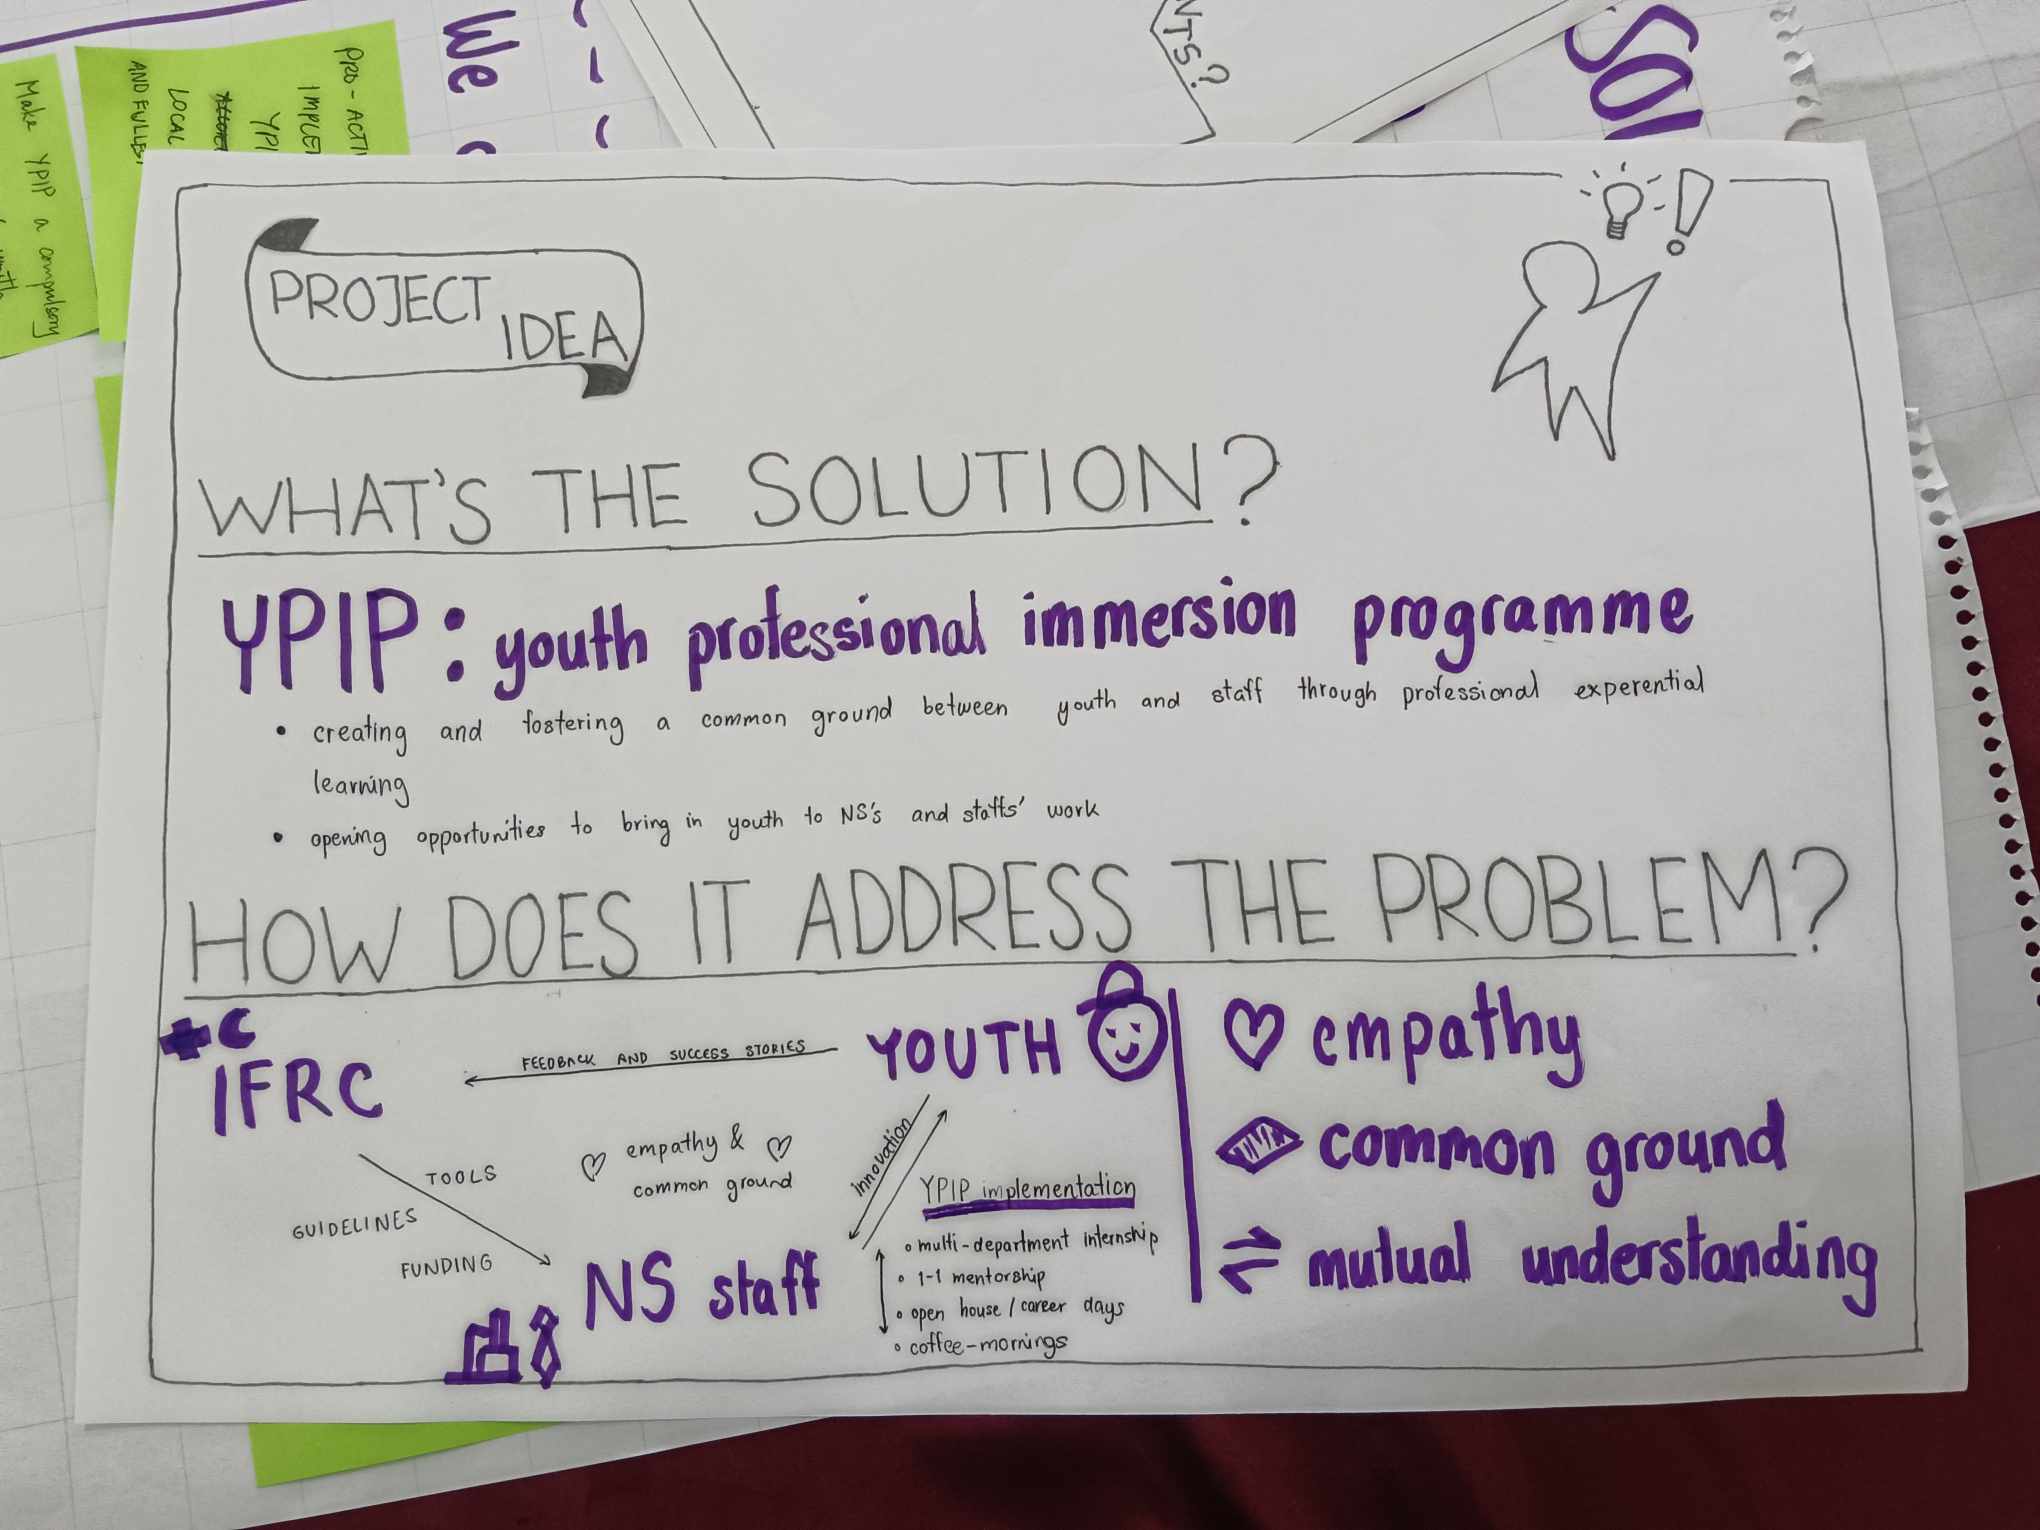 We
NTS?
SOL
Make YPIP a compulsory
AND FULLEST
LOCAL
YPI
IMPLE
PRO-ACTI
PROJECT
IDEA
WHAT'S THE SOLUTION?
YPIP: youth professional immersion programme
• creating and fostering a common ground between youth and staff through professional experential
learning
• opening opportunities to bring in youth to NS's and staffs' work
HOW DOES IT ADDRESS THE PROBLEM?
IFRC
FEEDBACK AND SUCCESS STORIES
YOUTH
TOOLS
GUIDELINES
FUNDING
empathy &
common ground
innovation
NS staff
YPIP implementation
◦ multi-department internship
◦ 1-1 mentorship
◦ open house / career days
◦ coffee-mornings
empathy
common ground
mutual understanding